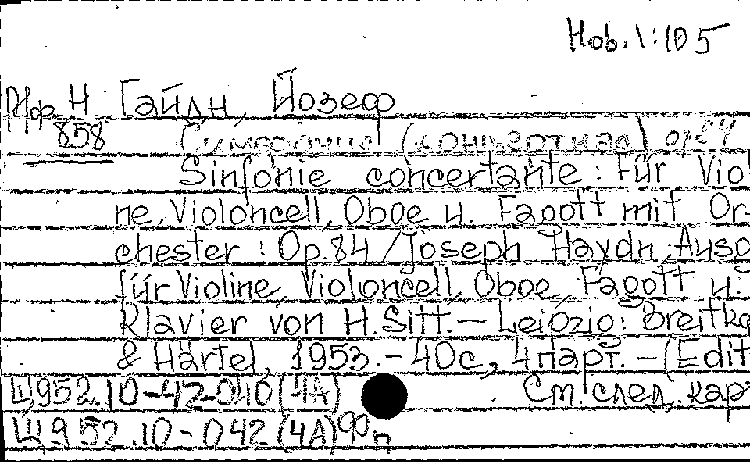 Нов.1:105
Нф Н Гайдн, Йозеф
858 Симфония (концертная) ор.84
Sinfonie concertante : Für Viol
ne, Violoncell, Oboe u. Fagott mit Or
chester : Op.84 / Joseph Haydn, Ausg
für Violine, Violoncell, Oboe, Fagott u.
Klavier von H. Sitt. – Leipzig: Breitko
& Härtel, 1953. – 40 с., 4 парт. – (Edit
Ц952.10-42-040 (4А) См. след. кар
Ц952.10-042 (4А)